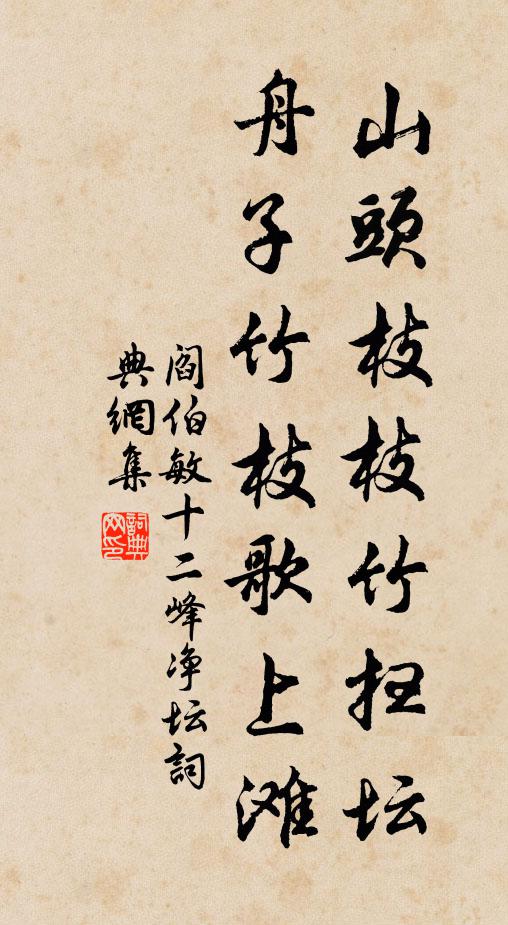 山頭枝枝竹扫坛
舟子竹枝歌上滩
阎伯敏十二峰净坛詞
典網集
詞典网印